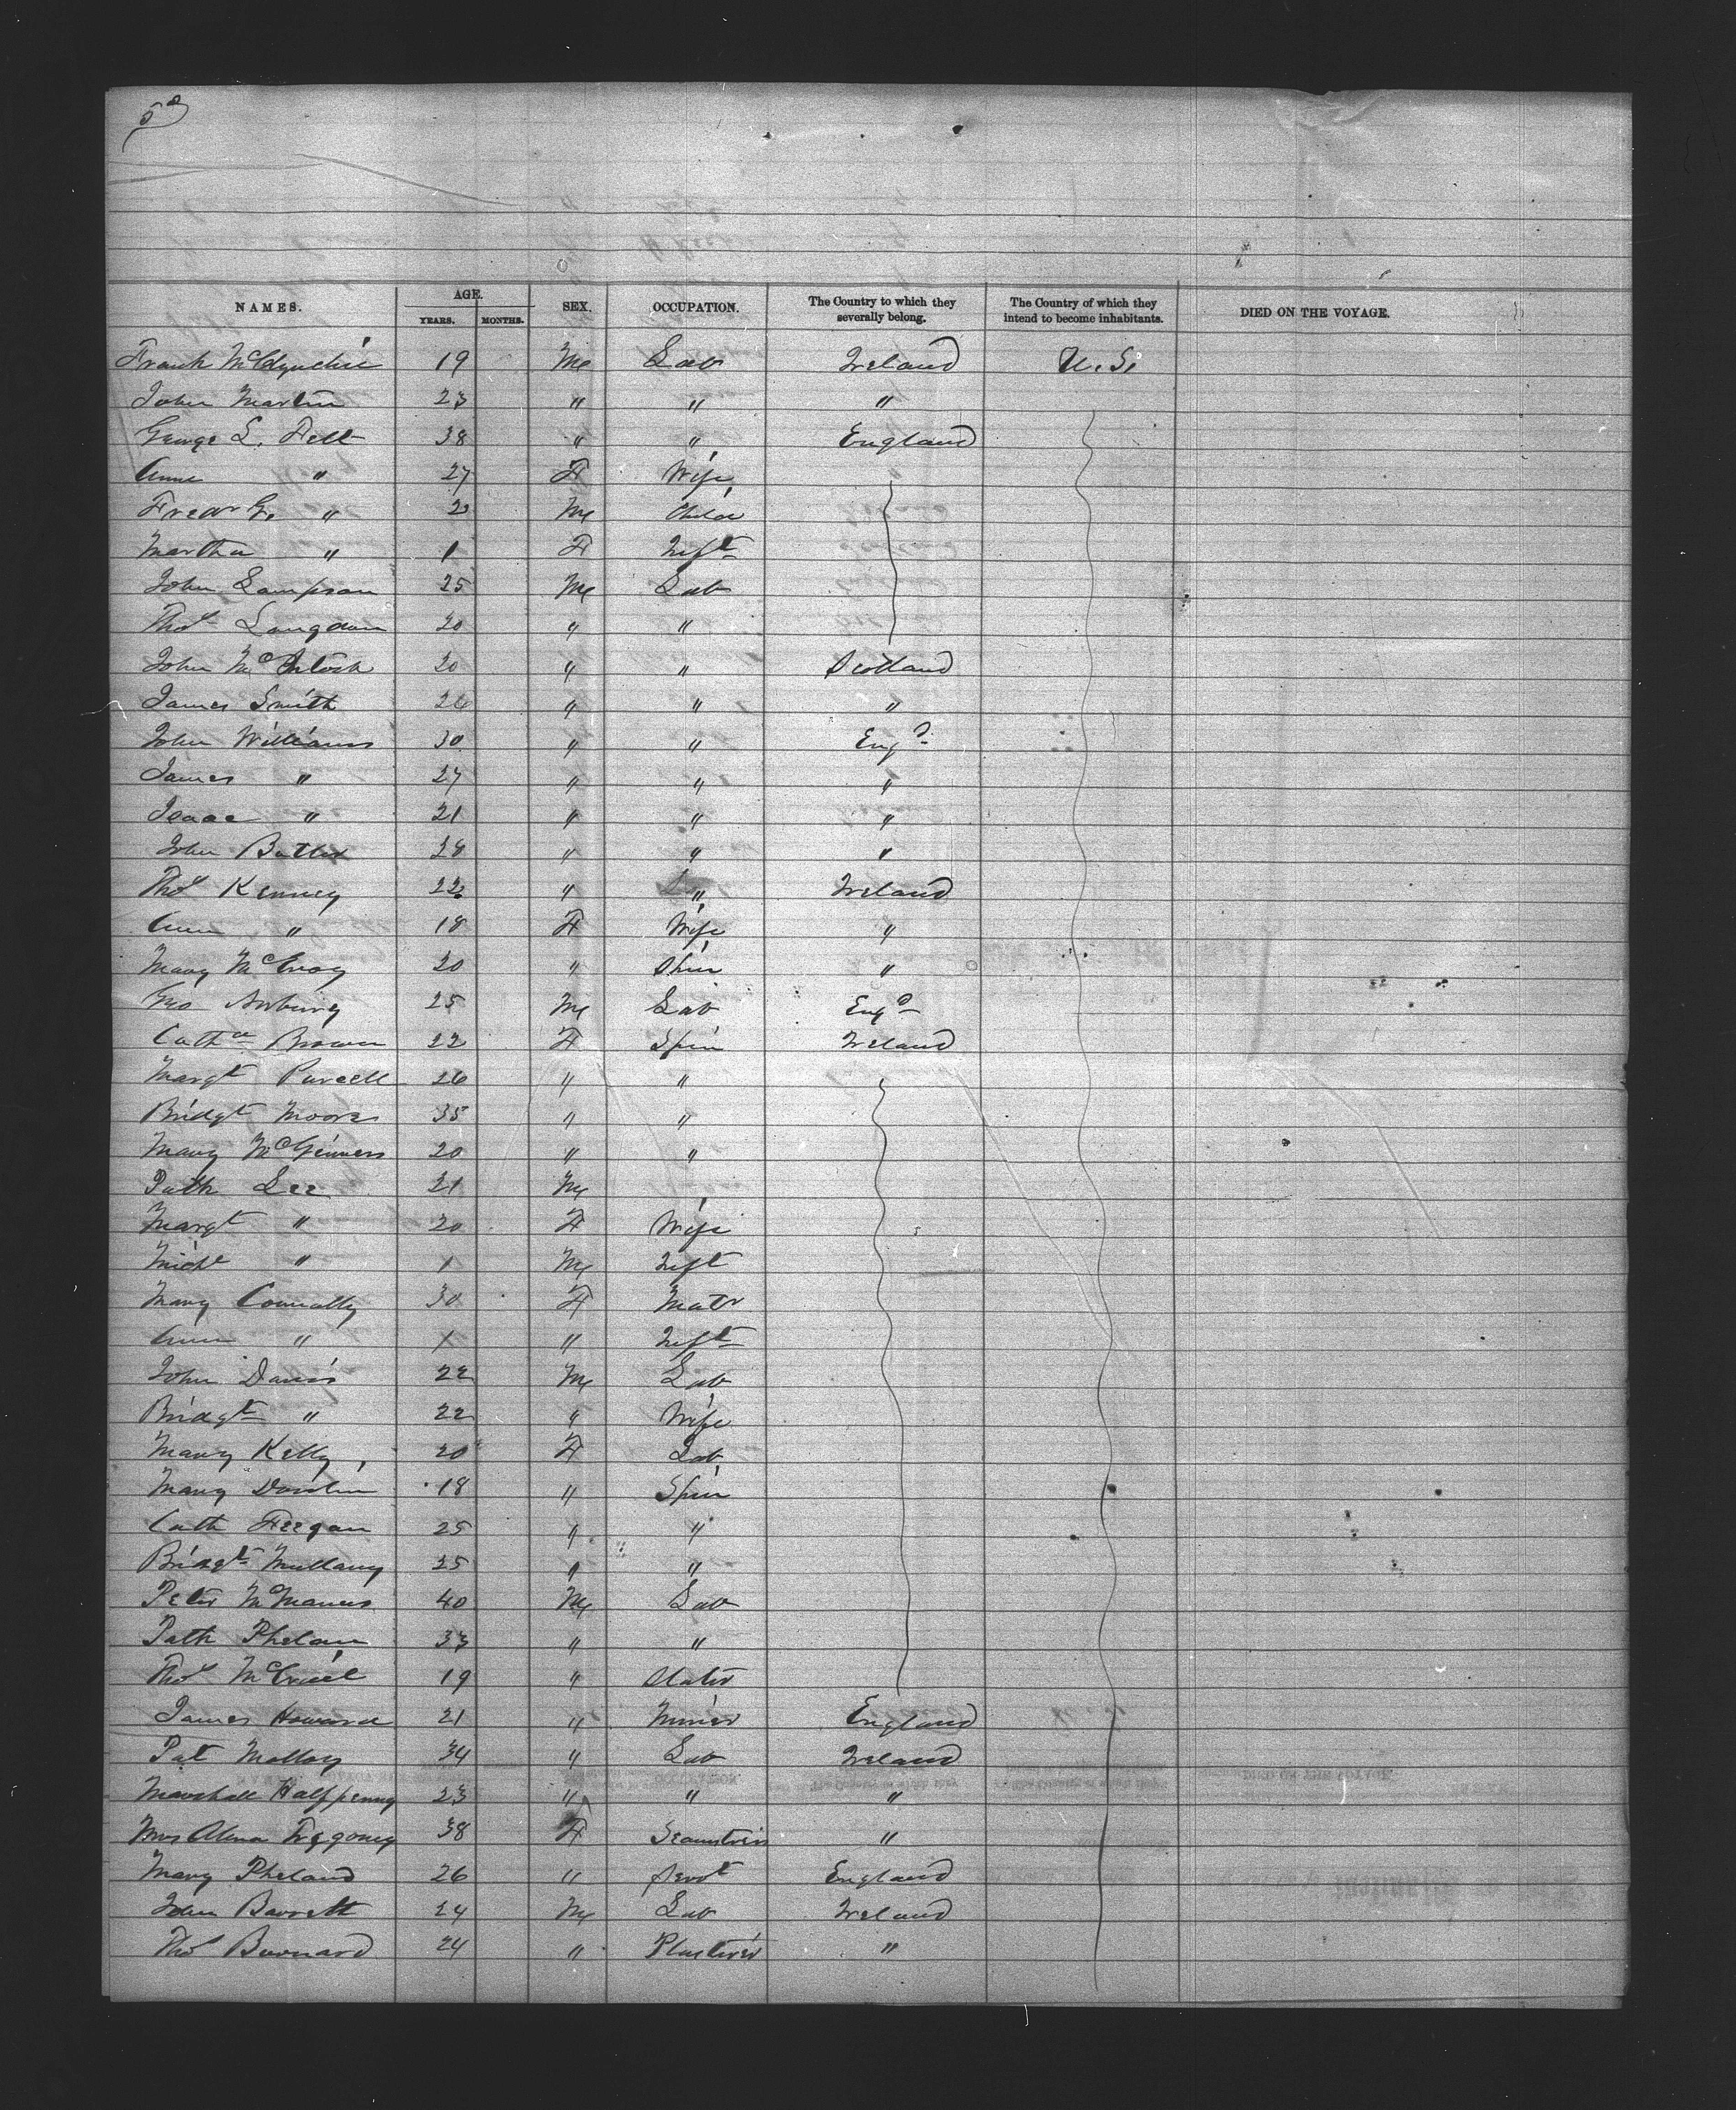 5
NAMES. AGE. YEARS. MONTHS. SEX. OCCUPATION. The Country to which they severally belong. The Country of which they intend to become inhabitants. DIED ON THE VOYAGE.
Frank 19 M Lab Ireland U.S.
John Martin 23 " " "
George L. Fell 38 " " England
Anne " 27 F Wife
Fredr G. " 2 M Child
Martha " 1 F Inft
John Lampson 25 M Lab
Thos Langdon 20 " "
John McIntosh 20 " " Scotland
James Smith " " "
John Williams 30 " " Engd
James " 27 " " "
Isaac " 21 " " "
John Butler 28 " " "
Thos Kenney 22 " " Ireland
Ann " 18 F Wife "
Mary McEvoy 20 " Spin "
Geo 25 M Lab Engd
Catha Brown 22 F Spin Ireland
Margt Purcell 26 " "
Bridgt Moore 35 " "
Mary McGinness 20 " "
Patk Lee 21 M
Margt " 20 F Wife
Michl " 1 M Inft
Mary Connolly 30 F Matr
Ann " 1 " Inft
John Davis 22 M Lab
Bridgt " 22 " Wife
Mary Kelly, 20 F Lab
Mary 18 " Spin
Cath Feegan 25 " "
Bridgt Mullany 25 " "
Peter McManus 40 M Lab
Patk Phelan 33 " "
Thos 19 " Slater
James Howard 21 " Miner England
Pat Molloy 34 " Lab Ireland
Marshall Halfpenny 23 " " "
Mrs 38 F Seamstress "
Mary Pheland 26 " Servt England
John Barrett 24 M Lab Ireland
Thos Barnard 24 " Plasterer "